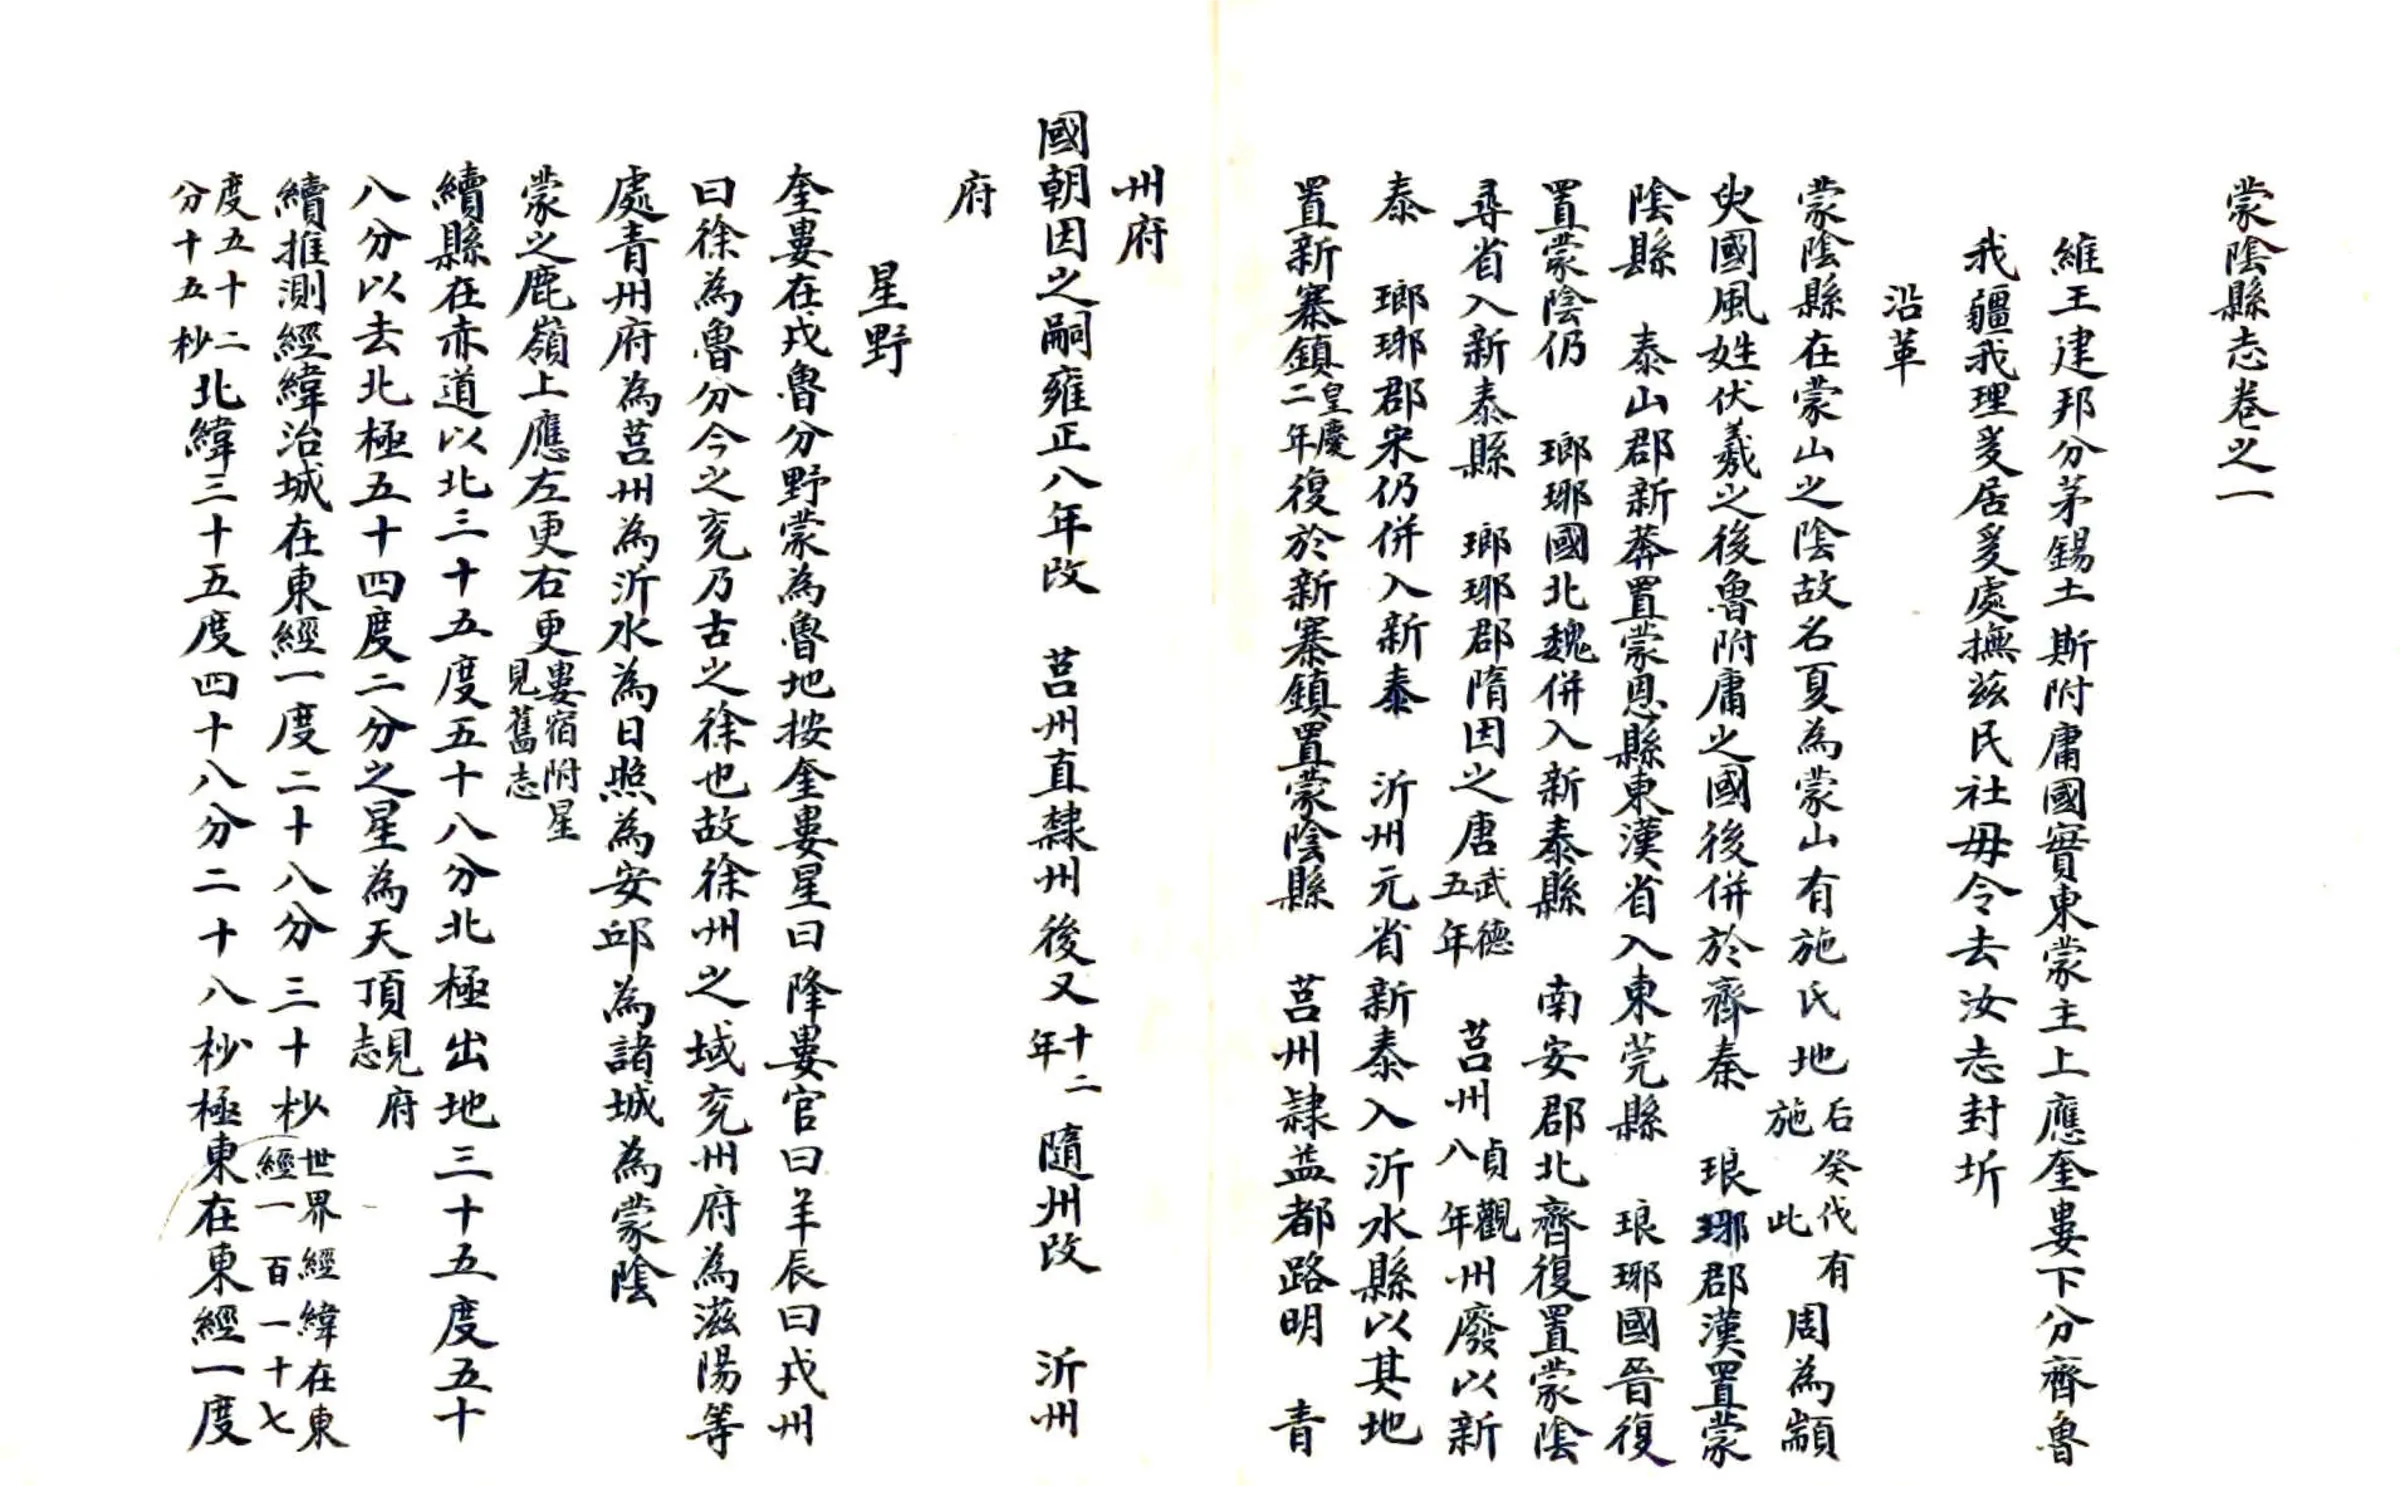 蒙陰縣志卷之一
維王建邦分茅錫土斯附庸國實東蒙主上應奎婁下分齊魯
我疆我理爰居爰處撫茲民社毋令去汝志封圻
沿革
蒙陰縣在蒙山之陰故名夏為蒙山有施氏地后癸伐有施此周為顓
臾國風姓伏羲之後魯附庸之國後併於齊秦 琅琊郡漢置蒙
陰縣 泰山郡新莽置蒙恩縣東漢省入東莞縣 琅琊國晉復
置蒙陰仍 瑯琊國北魏併入新泰縣 南安郡北齊復置蒙陰
尋省入新泰縣 瑯琊郡隋因之唐武德五年 莒州貞觀八年州廢以新
泰 瑯琊郡宋仍併入新泰 沂州元省新泰入沂水縣以其地
置新寨鎮皇慶二年復於新寨鎮置蒙陰縣 莒州隸益都路明 青
州府
國朝因之嗣雍正八年改 莒州直隸州後又十二年隨州改 沂州
府
星野
奎婁在戌魯分野蒙為魯地按奎婁星曰降婁官曰羊辰曰戌州
曰徐為魯分今之兗乃古之徐也故徐州之域兗州府為滋陽等
處青州府為莒州為沂水為日照為安邱為諸城為蒙陰
蒙之鹿嶺上應左更右更婁宿附星見舊志
續縣在赤道以北三十五度五十八分北極出地三十五度五十
八分以去北極五十四度二分之星為天頂見府志
續推測經緯治城在東經一度二十八分三十杪世界經緯在東經一百一十七
度五十二分十五杪北緯三十五度四十八分二十八杪極東在東經一度